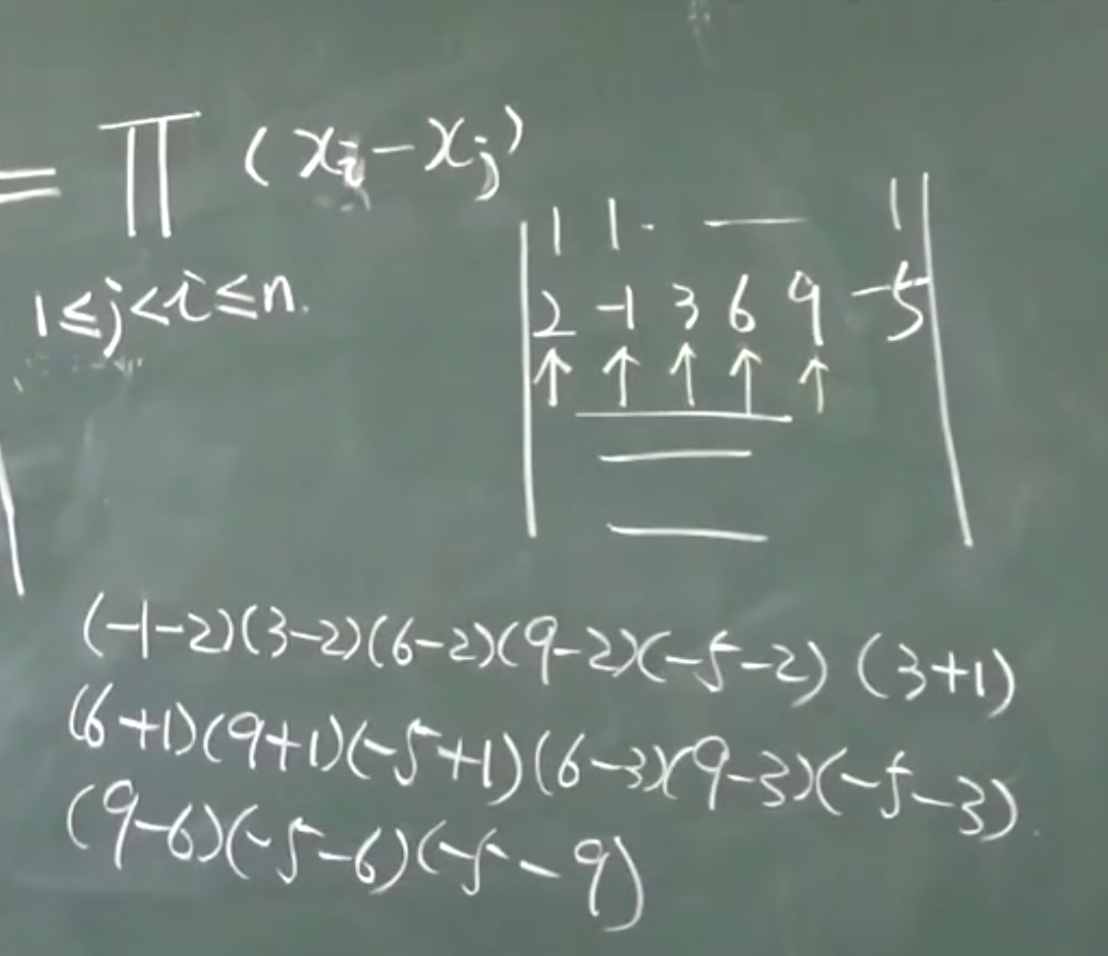 = ∏ (xᵢ - xⱼ)
1≤j<i≤n.
| 1 1 · — 1 |
| 2 -1 3 6 9 -5 |
↑ ↑ ↑ ↑ ↑
(-1-2)(3-2)(6-2)(9-2)(-5-2) (3+1)
(6+1)(9+1)(-5+1)(6-3)(9-3)(-5-3).
(9-6)(-5-6)(-5-9)